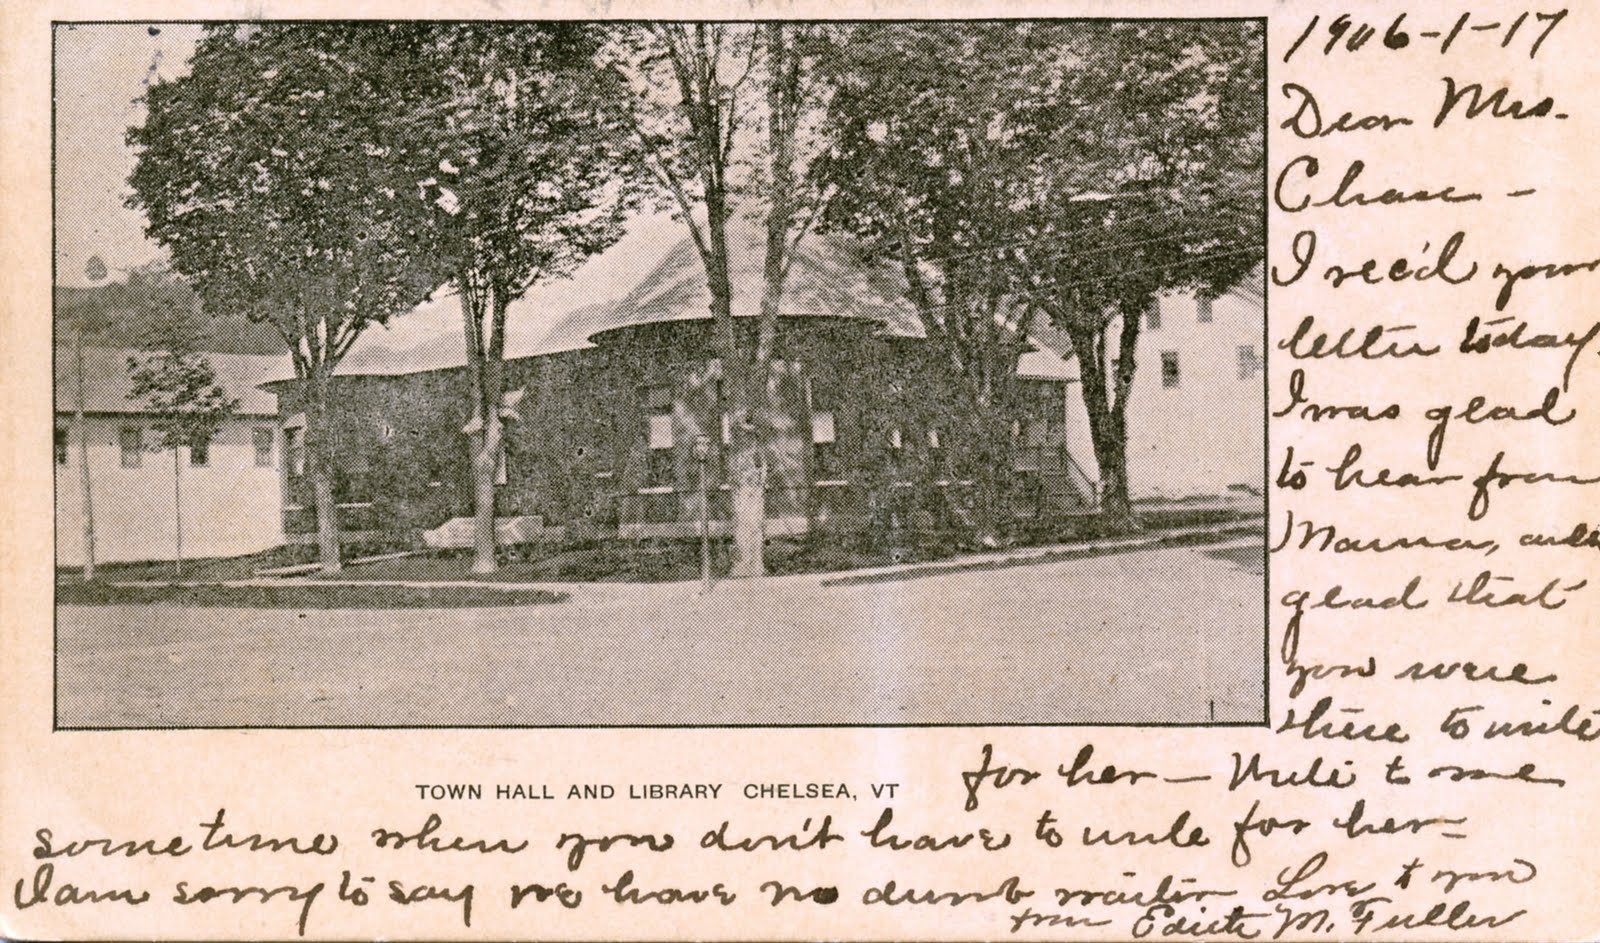 1906-1-17
Dear Mrs.
Chase -
I rec'd your
letter today.
I was glad
to hear from
Mama, and
glad that
you were
there to write
for her - Write to me
TOWN HALL AND LIBRARY CHELSEA, VT
sometime when you don't have to write for her -
I am sorry to say we have no dumb waiter Love to you
Edith M. Fuller